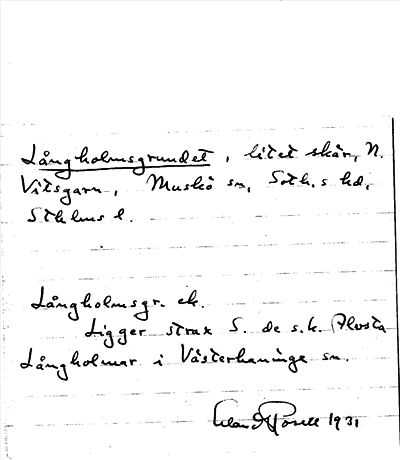 Långholmsgrundet, litet skär, N.
Vitsgarn, Muskö sn, Soth.s hd,
Sthlms l.
Långholmsgr. ek.
Ligger strax S. de s.k. Ålvsta
Långholmar i Västerhaninge sn.
1931